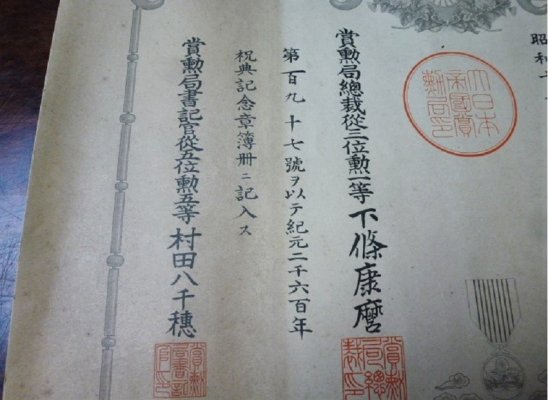 昭和十
大日本帝國賞勳局印
賞勳局總裁從三位勳一等下條康麿
賞勳局總裁印
第百九十七號ヲ以テ紀元二千六百年
祝典記念章簿册ニ記入ス
賞勳局書記官從五位勳五等村田八千穗
賞勳局書記官印